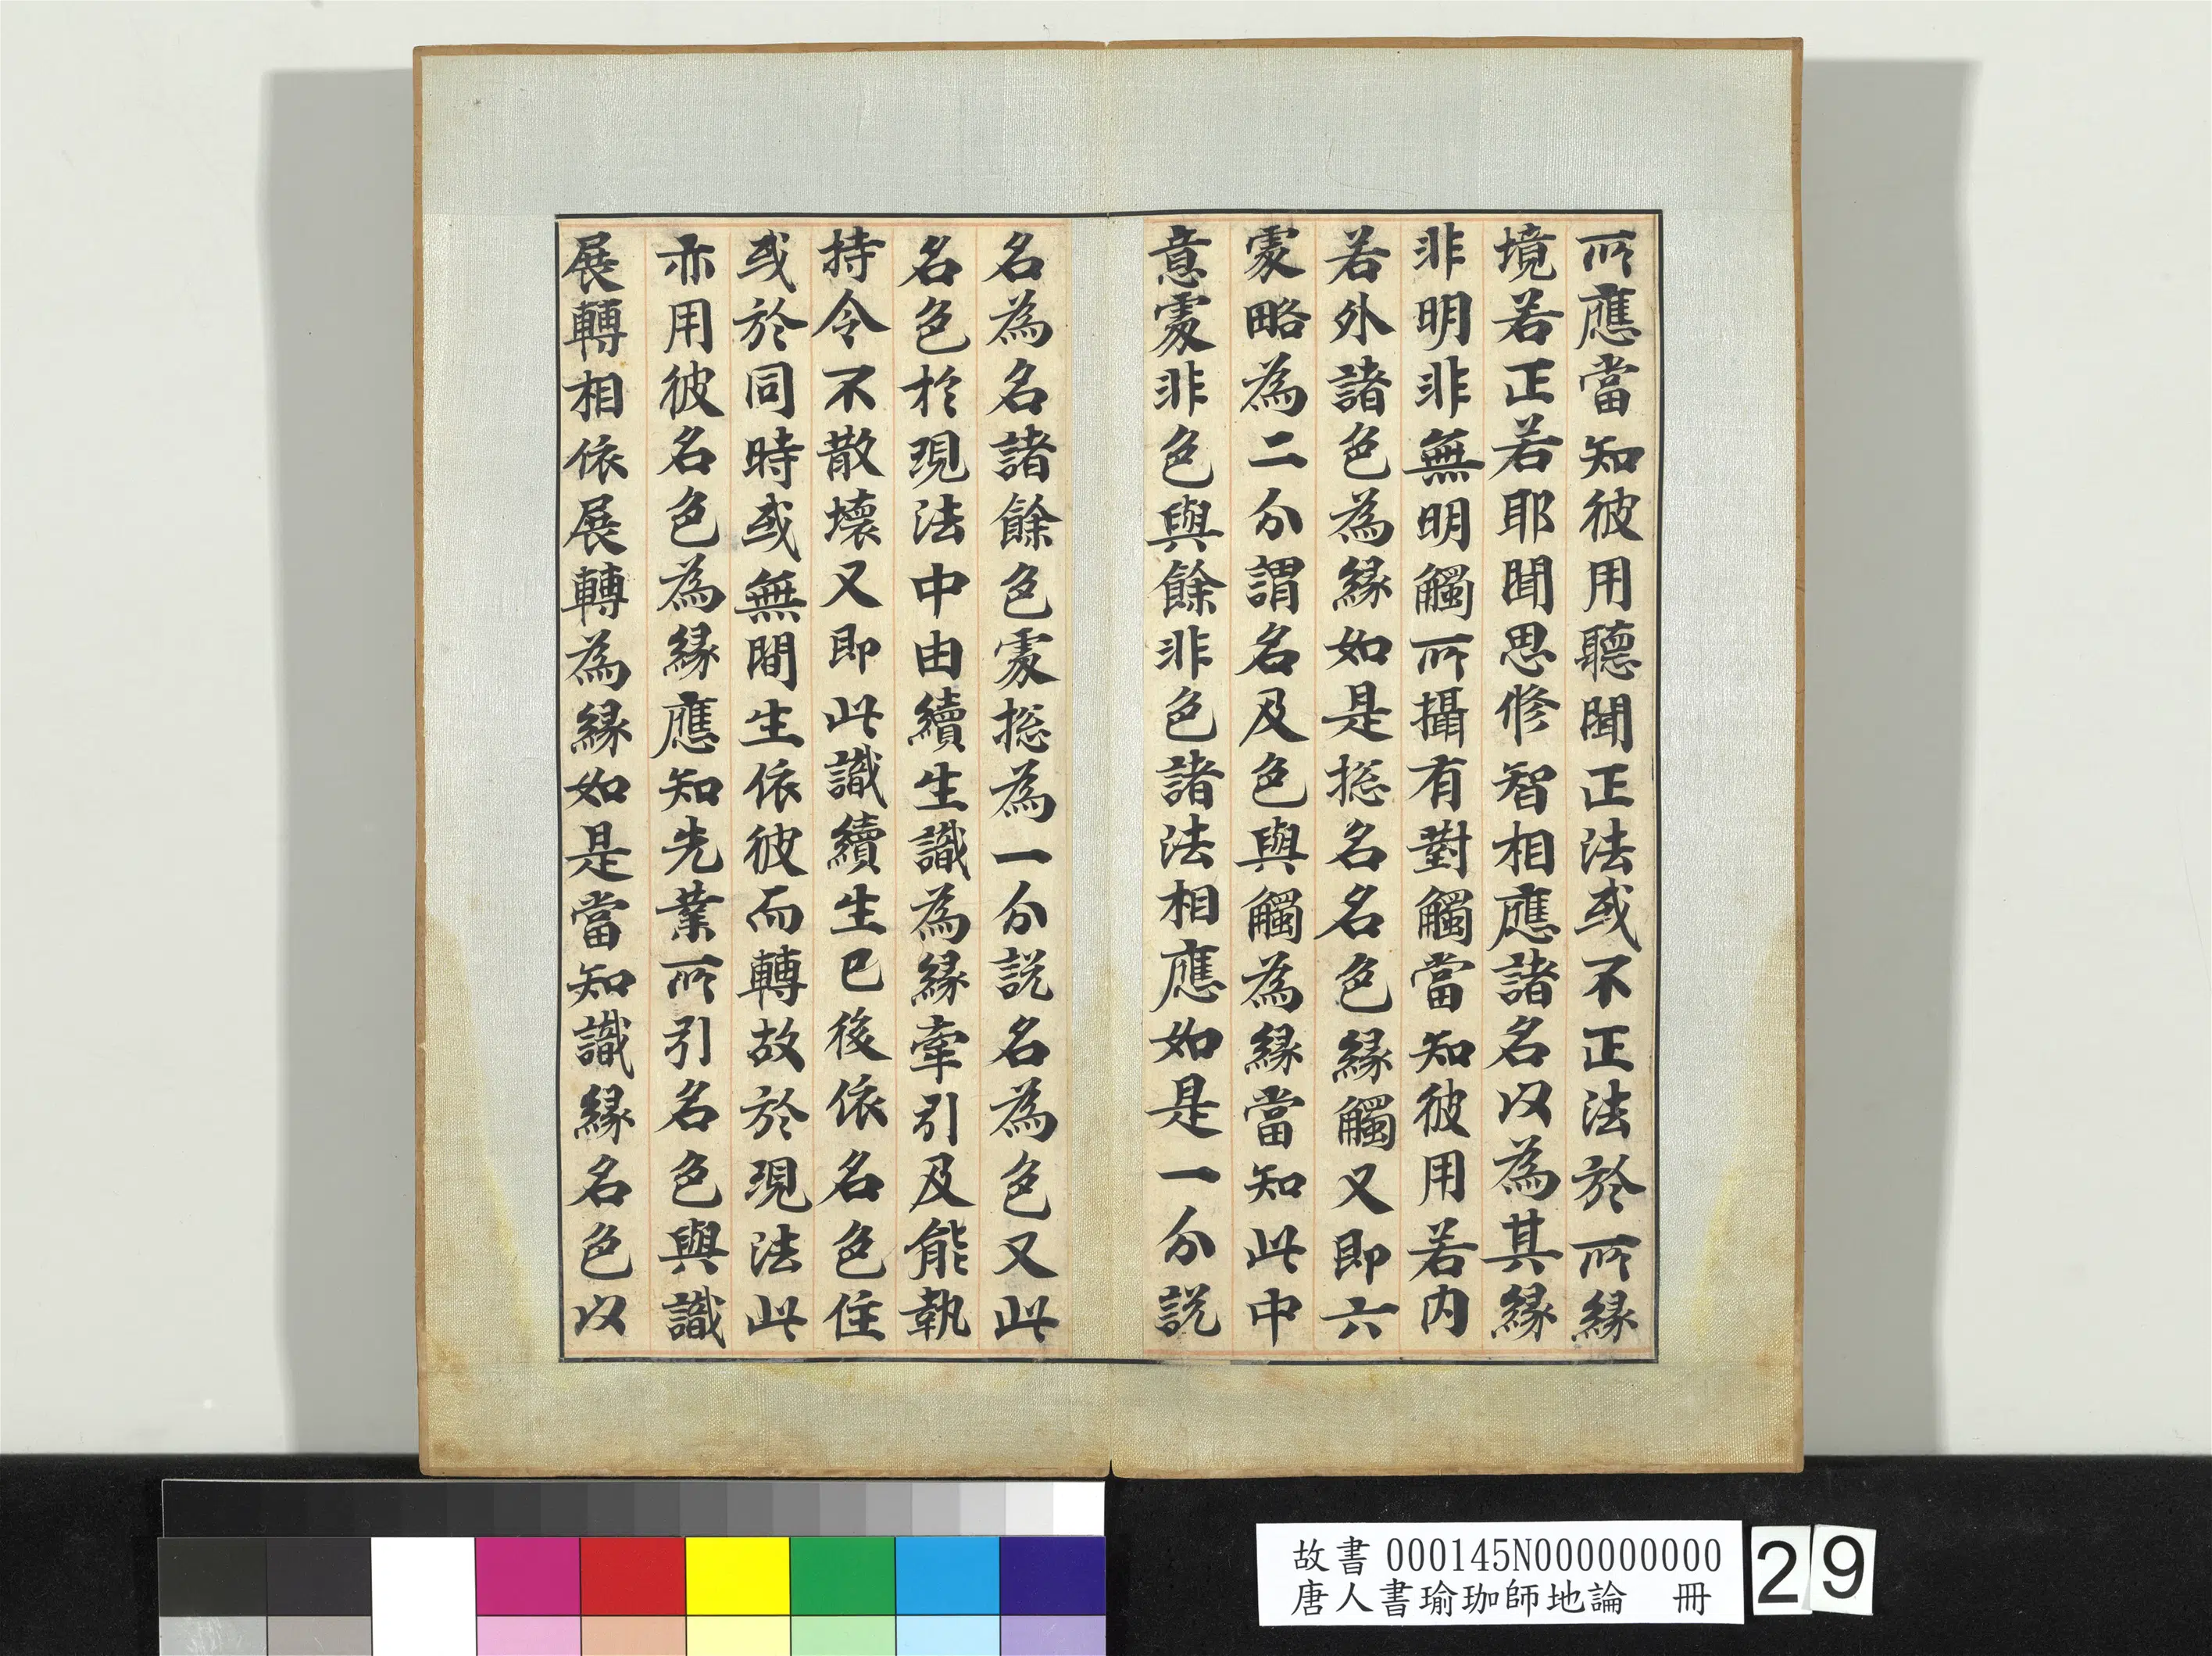 所應當知彼用聽聞正法或不正法於所緣
境若正若耶聞思修智相應諸名以為其緣
非明非無明觸所攝有對觸當知彼用若内
若外諸色為緣如是揔名名色緣觸又即六
處略為二分謂名及色與觸為緣當知此中
意處非色與餘非色諸法相應如是一分說
名為名諸餘色處揔為一分說名為色又此
名色於現法中由續生識為緣牽引及能執
持令不散壞又即此識續生已後依名色住
或於同時或無間生依彼而轉故於現法此
亦用彼名色為緣應知先業所引名色與識
展轉相依展轉為緣如是當知識緣名色以
故書 000145N000000000
唐人書瑜珈師地論 冊
29